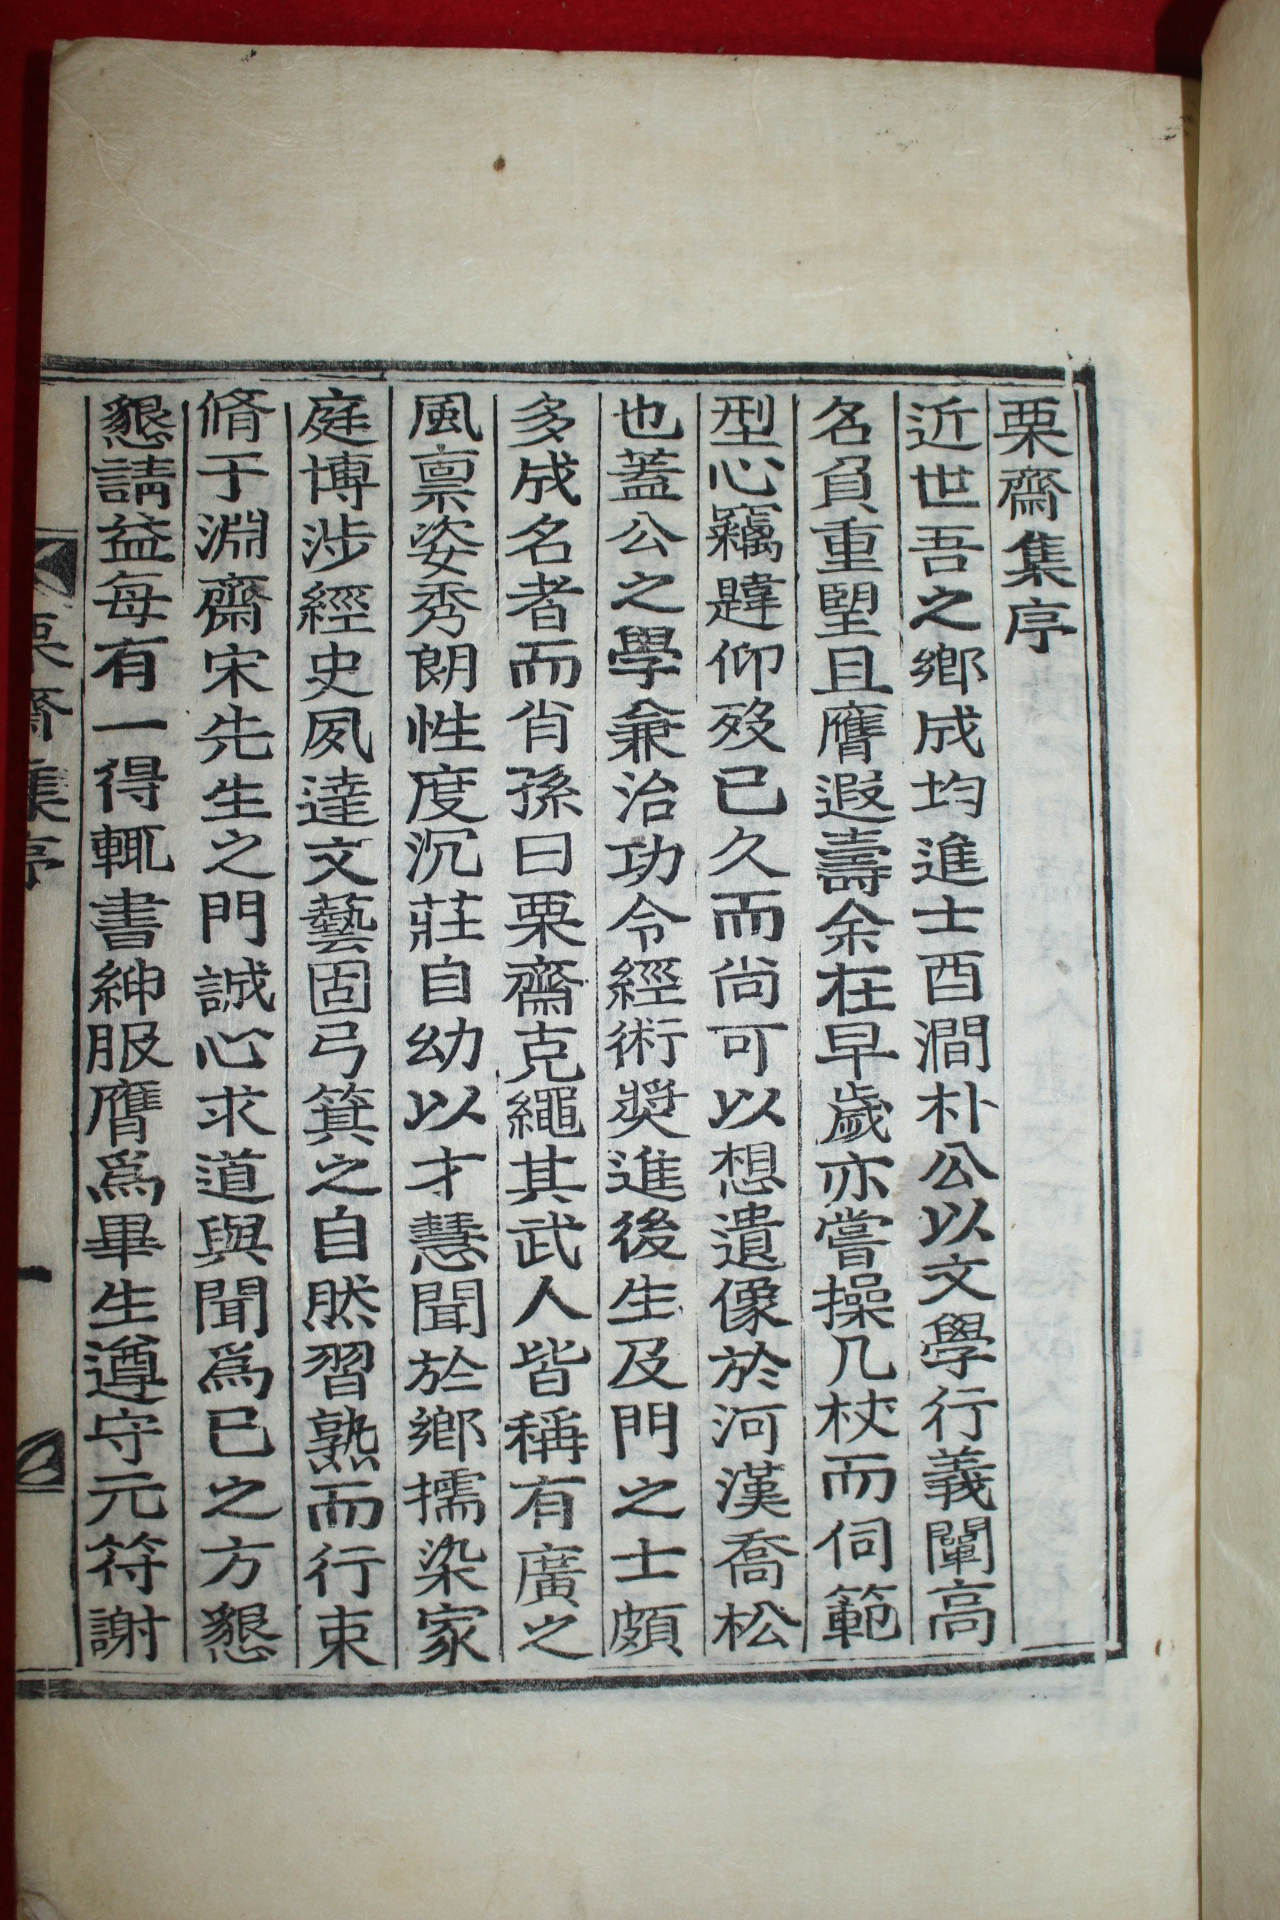 栗齋集序
近世吾之鄉成均進士酉澗朴公以文學行義闡高
名負重望且膺遐壽余在早歲亦嘗操几杖而伺範
型心竊韙仰歿已久而尚可以想遺像於河漢喬松
也蓋公之學兼治功令經術奬進後生及門之士頗
多成名者而肖孫曰栗齋克繩其武人皆稱有廣之
風禀姿秀朗性度沉莊自幼以才慧聞於鄉擩染家
庭博涉經史夙達文藝固弓箕之自然習熟而行束
脩于淵齋宋先生之門誠心求道與聞爲己之方懇
懇請益每有一得輒書紳服膺爲畢生遵守元符謝
栗齋集序
一